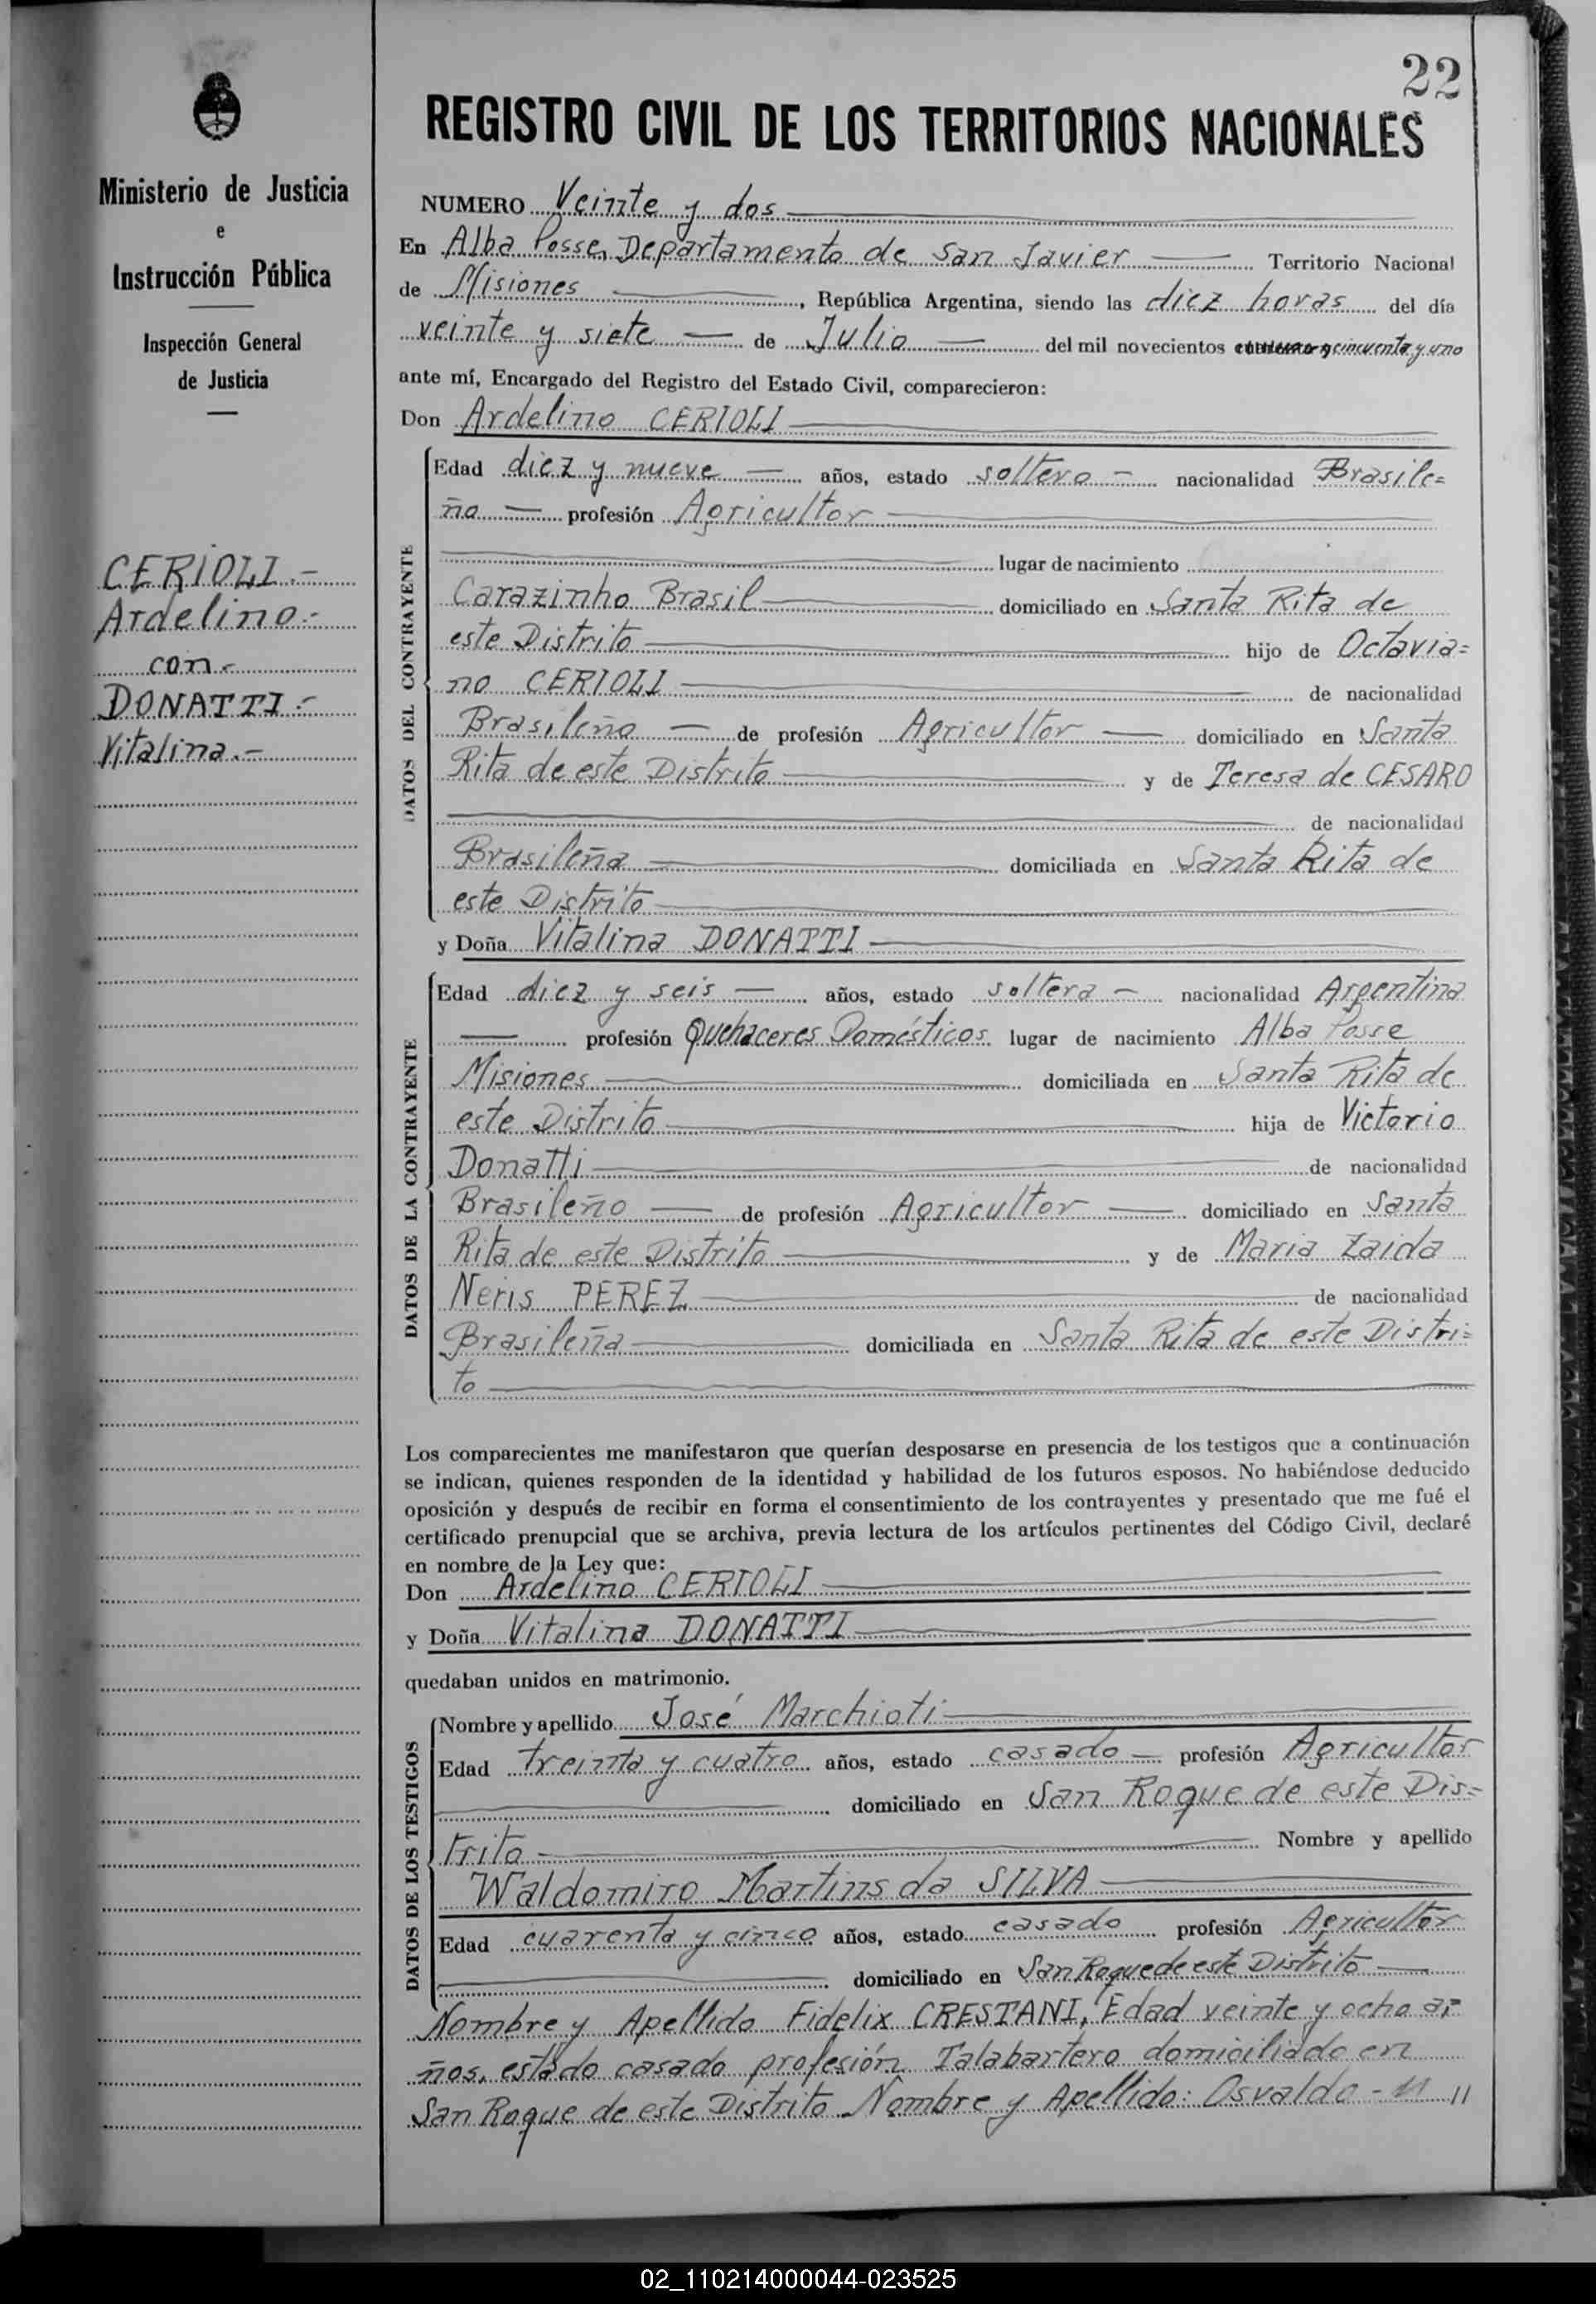 22
REGISTRO CIVIL DE LOS TERRITORIOS NACIONALES
Ministerio de Justicia
e
Instrucción Pública
Inspección General
de Justicia
CERIOLI.-
Ardelino.-
con.-
DONATTI.-
Vitalina.-
NUMERO Veinte y dos
En Alba Posse, Departamento de San Javier Territorio Nacional
de Misiones, República Argentina, siendo las diez horas del día
veinte y siete de Julio del mil novecientos cincuenta y uno
ante mí, Encargado del Registro del Estado Civil, comparecieron:
Don Ardelino CERIOLI
DATOS DEL CONTRAYENTE
Edad diez y nueve años, estado soltero nacionalidad Brasile=
ño profesión Agricultor
lugar de nacimiento
Carazinho Brasil domiciliado en Santa Rita de
este Distrito hijo de Octavia=
no CERIOLI de nacionalidad
Brasileño de profesión Agricultor domiciliado en Santa
Rita de este Distrito y de Teresa de CESARO
de nacionalidad
Brasileña domiciliada en Santa Rita de
este Distrito
y Doña Vitalina DONATTI
DATOS DE LA CONTRAYENTE
Edad diez y seis años, estado soltera nacionalidad Argentina
profesión Quehaceres Domésticos lugar de nacimiento Alba Posse
Misiones domiciliada en Santa Rita de
este Distrito hija de Victorio
Donatti de nacionalidad
Brasileño de profesión Agricultor domiciliado en Santa
Rita de este Distrito y de Maria Zaida
Neris PEREZ de nacionalidad
Brasileña domiciliada en Santa Rita de este Distri=
to
Los comparecientes me manifestaron que querían desposarse en presencia de los testigos que a continuación
se indican, quienes responden de la identidad y habilidad de los futuros esposos. No habiéndose deducido
oposición y después de recibir en forma el consentimiento de los contrayentes y presentado que me fué el
certificado prenupcial que se archiva, previa lectura de los artículos pertinentes del Código Civil, declaré
en nombre de la Ley que:
Don Ardelino CERIOLI
y Doña Vitalina DONATTI
quedaban unidos en matrimonio.
DATOS DE LOS TESTIGOS
Nombre y apellido José Marchioti
Edad treinta y cuatro años, estado casado profesión Agricultor
domiciliado en San Roque de este Dis=
trito Nombre y apellido
Waldomiro Martins da SILVA
Edad cuarenta y cinco años, estado casado profesión Agricultor
domiciliado en San Roque de este Distrito
Nombre y Apellido Fidelix CRESTANI, Edad veinte y ocho a=
ños, estado casado profesión Talabartero domiciliado en
San Roque de este Distrito Nombre y Apellido: Osvaldo - // //
02_110214000044-023525